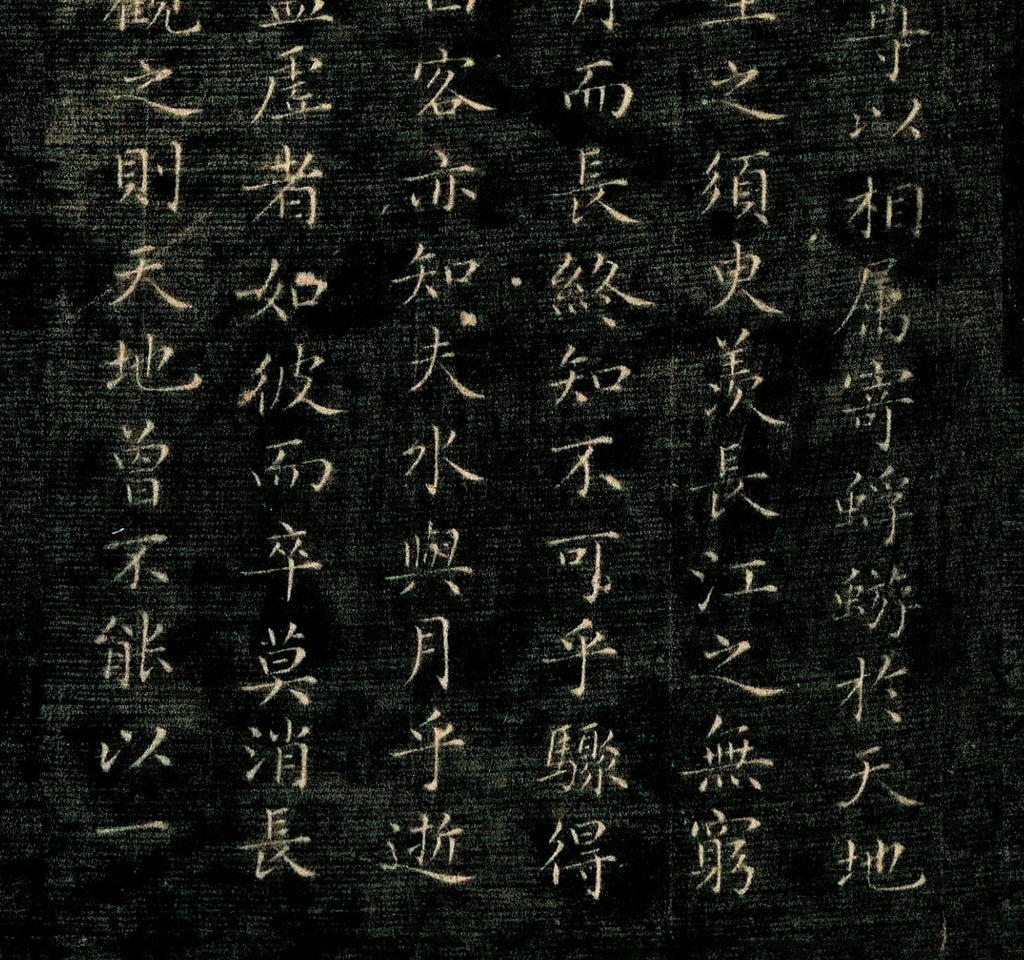 尊以相属寄蜉蝣於天地
生之須臾羡長江之無窮
月而長終知不可乎驟得
客亦知夫水與月乎逝
虚者如彼而卒莫消長
觀之則天地曾不能以一